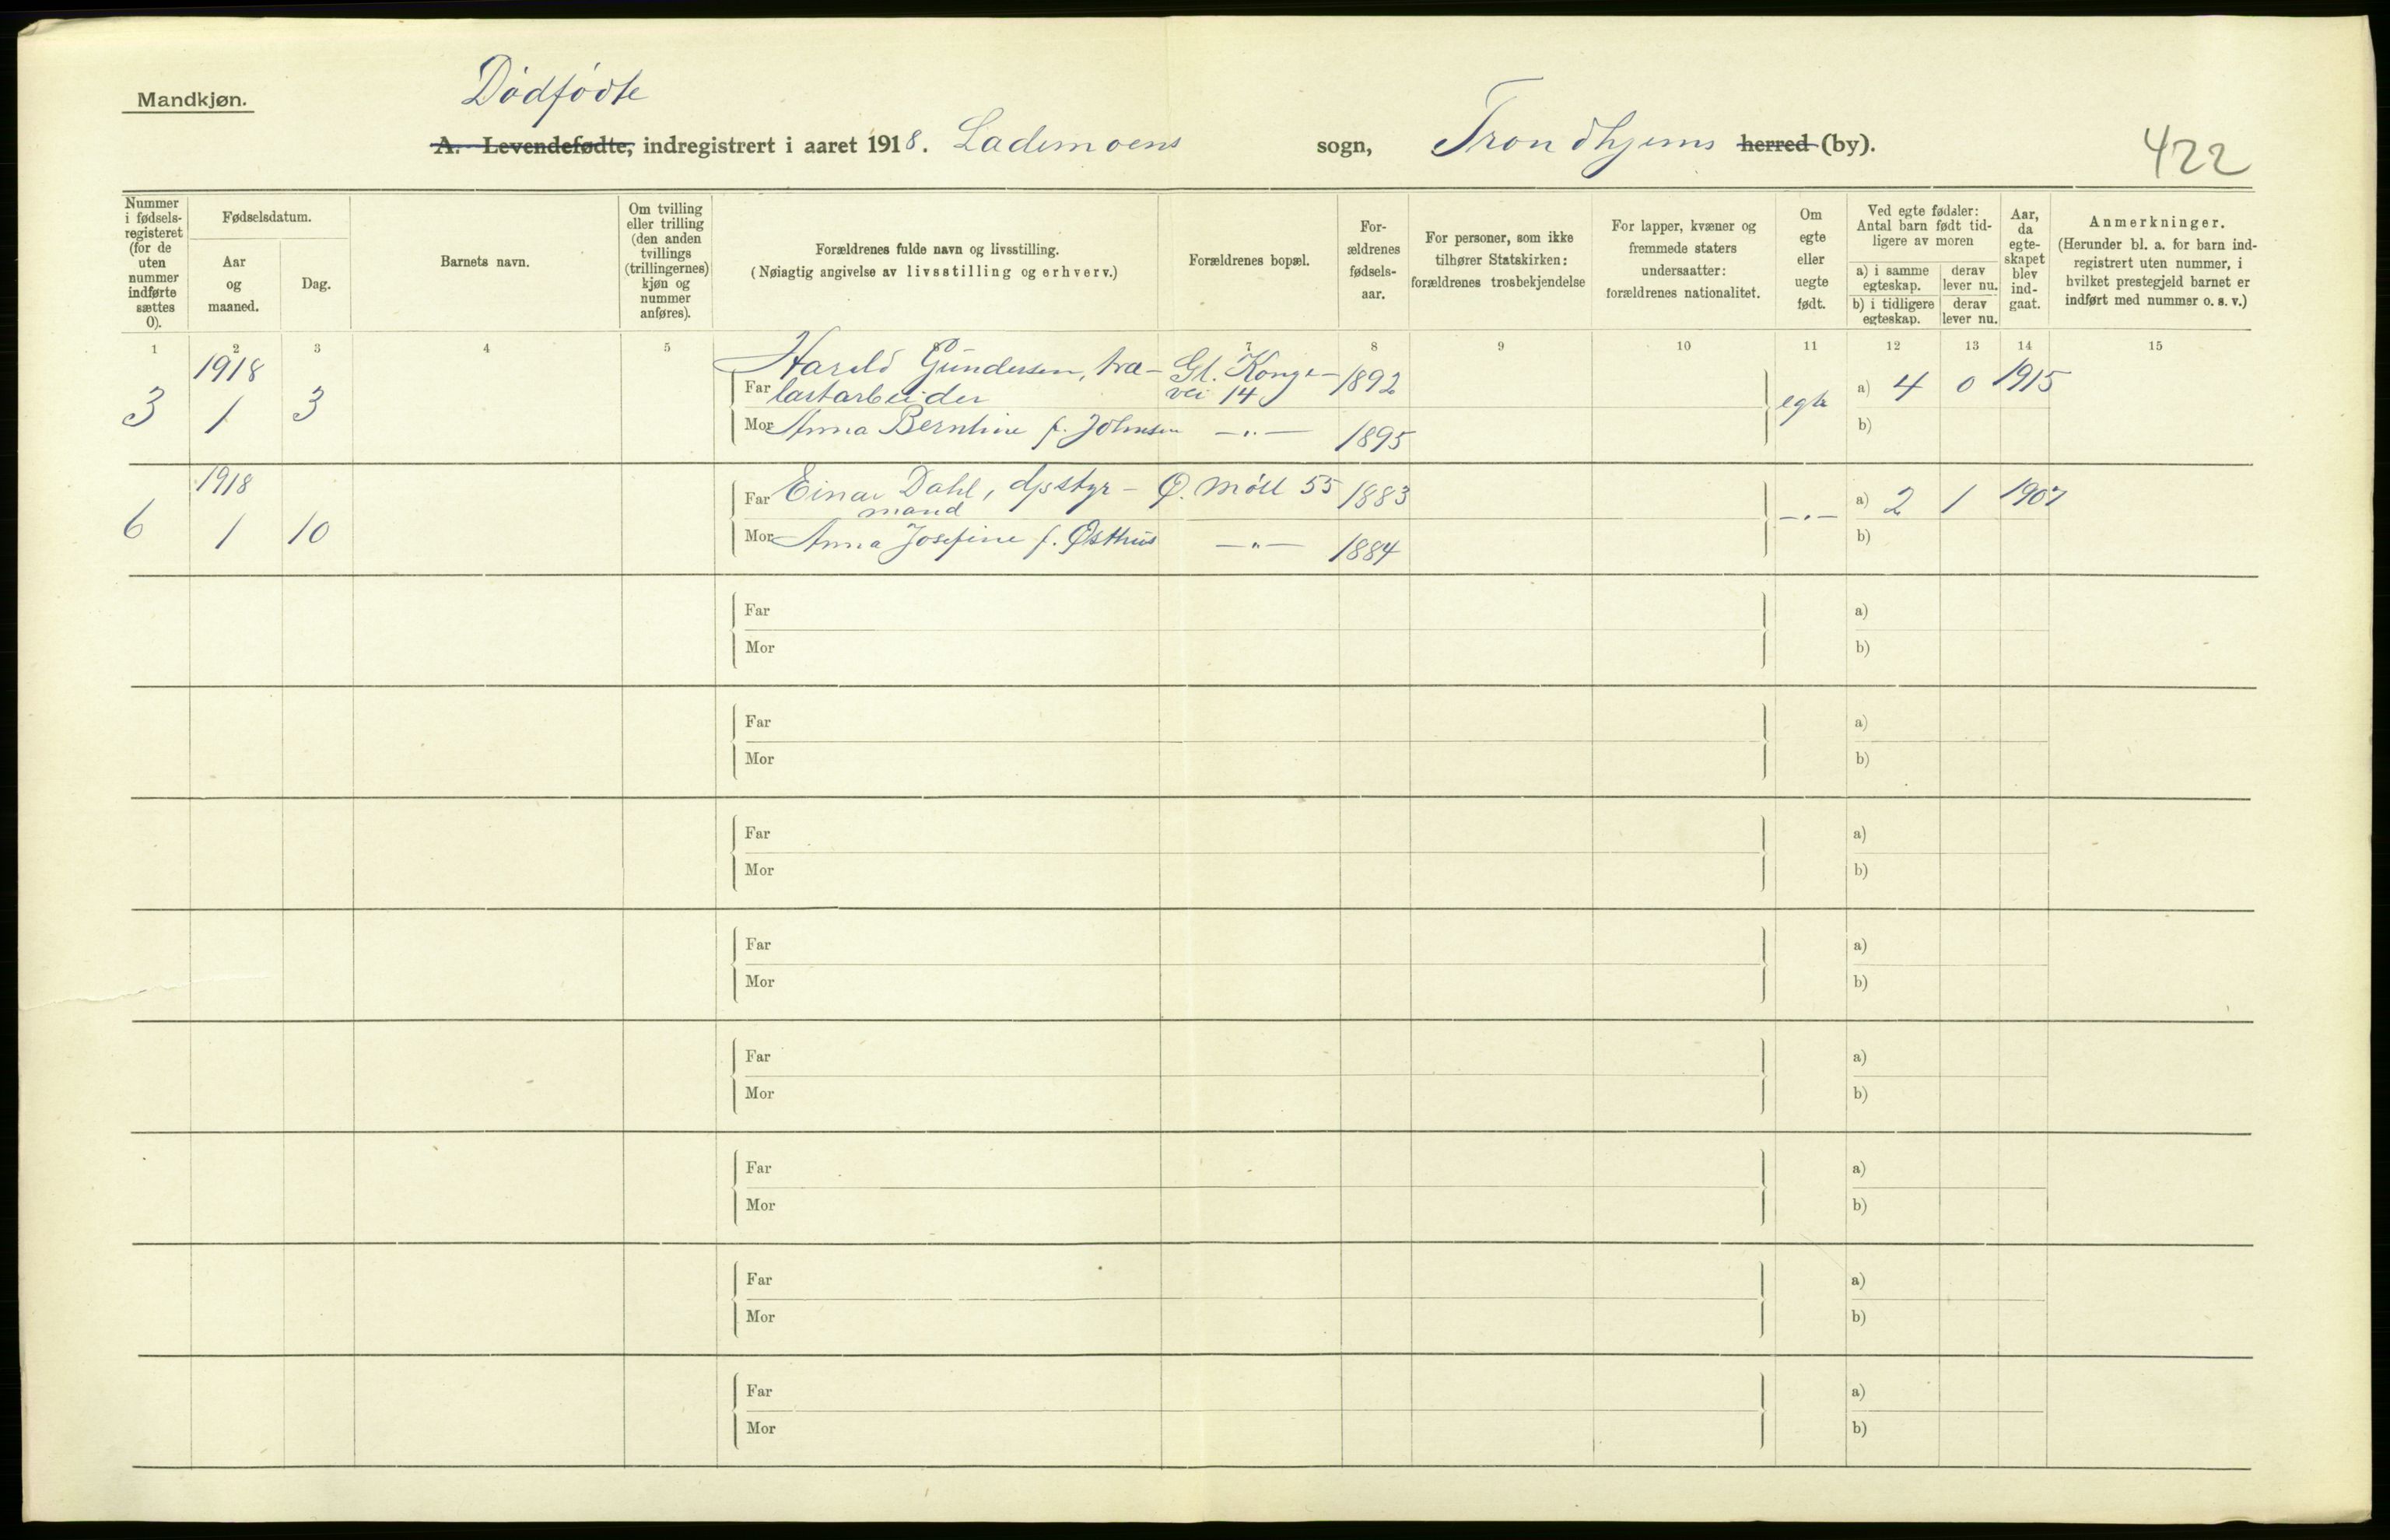 Mandkjøn.
Dødfødte
A. Levendefødte, indregistrert i aaret 1918. Lademoens sogn, Trondhjems herred (by).
422
Nummer i fødsels-registeret (for de uten nummer indførte sættes 0).
Fødselsdatum.
Aar og maaned.
Dag.
Barnets navn.
Om tvilling eller trilling (den anden tvillings (trillingernes) kjøn og nummer anføres).
Forældrenes fulde navn og livsstilling.
(Nøiagtig angivelse av livsstilling og erhverv.)
Forældrenes bopæl.
For-ældrenes fødsels-aar.
For personer, som ikke tilhører Statskirken: forældrenes trosbekjendelse
For lapper, kvæner og fremmede staters undersaatter: forældrenes nationalitet.
Om egte eller uegte født.
Ved egte fødsler: Antal barn født tid-ligere av moren
a) i samme egteskap.
derav lever nu.
b) i tidligere egteskap.
derav lever nu.
Aar, da egte-skapet blev ind-gaat.
Anmerkninger.
(Herunder bl. a. for barn ind-registrert uten nummer, i hvilket prestegjeld barnet er indført med nummer o. s. v.)
1 2 3 4 5 6 7 8 9 10 11 12 13 14 15
1918 Harald Gundersen, træ- Gl. Konge- 1892
3 1 3 Far lastarbeider vei 14 egte a) 4 0 1915
Mor Anna Berntine f. Johnsen —"— 1895 b)
1918 Far Einar Dahl, Ø. Møll 55 1883 a) 2 1 1907
mand
6 1 10 Mor Anna Josefine f. Østhus —"— 1884 —"— b)
Far a)
Mor b)
Far a)
Mor b)
Far a)
Mor b)
Far a)
Mor b)
Far a)
Mor b)
Far a)
Mor b)
Far a)
Mor b)
Far a)
Mor b)